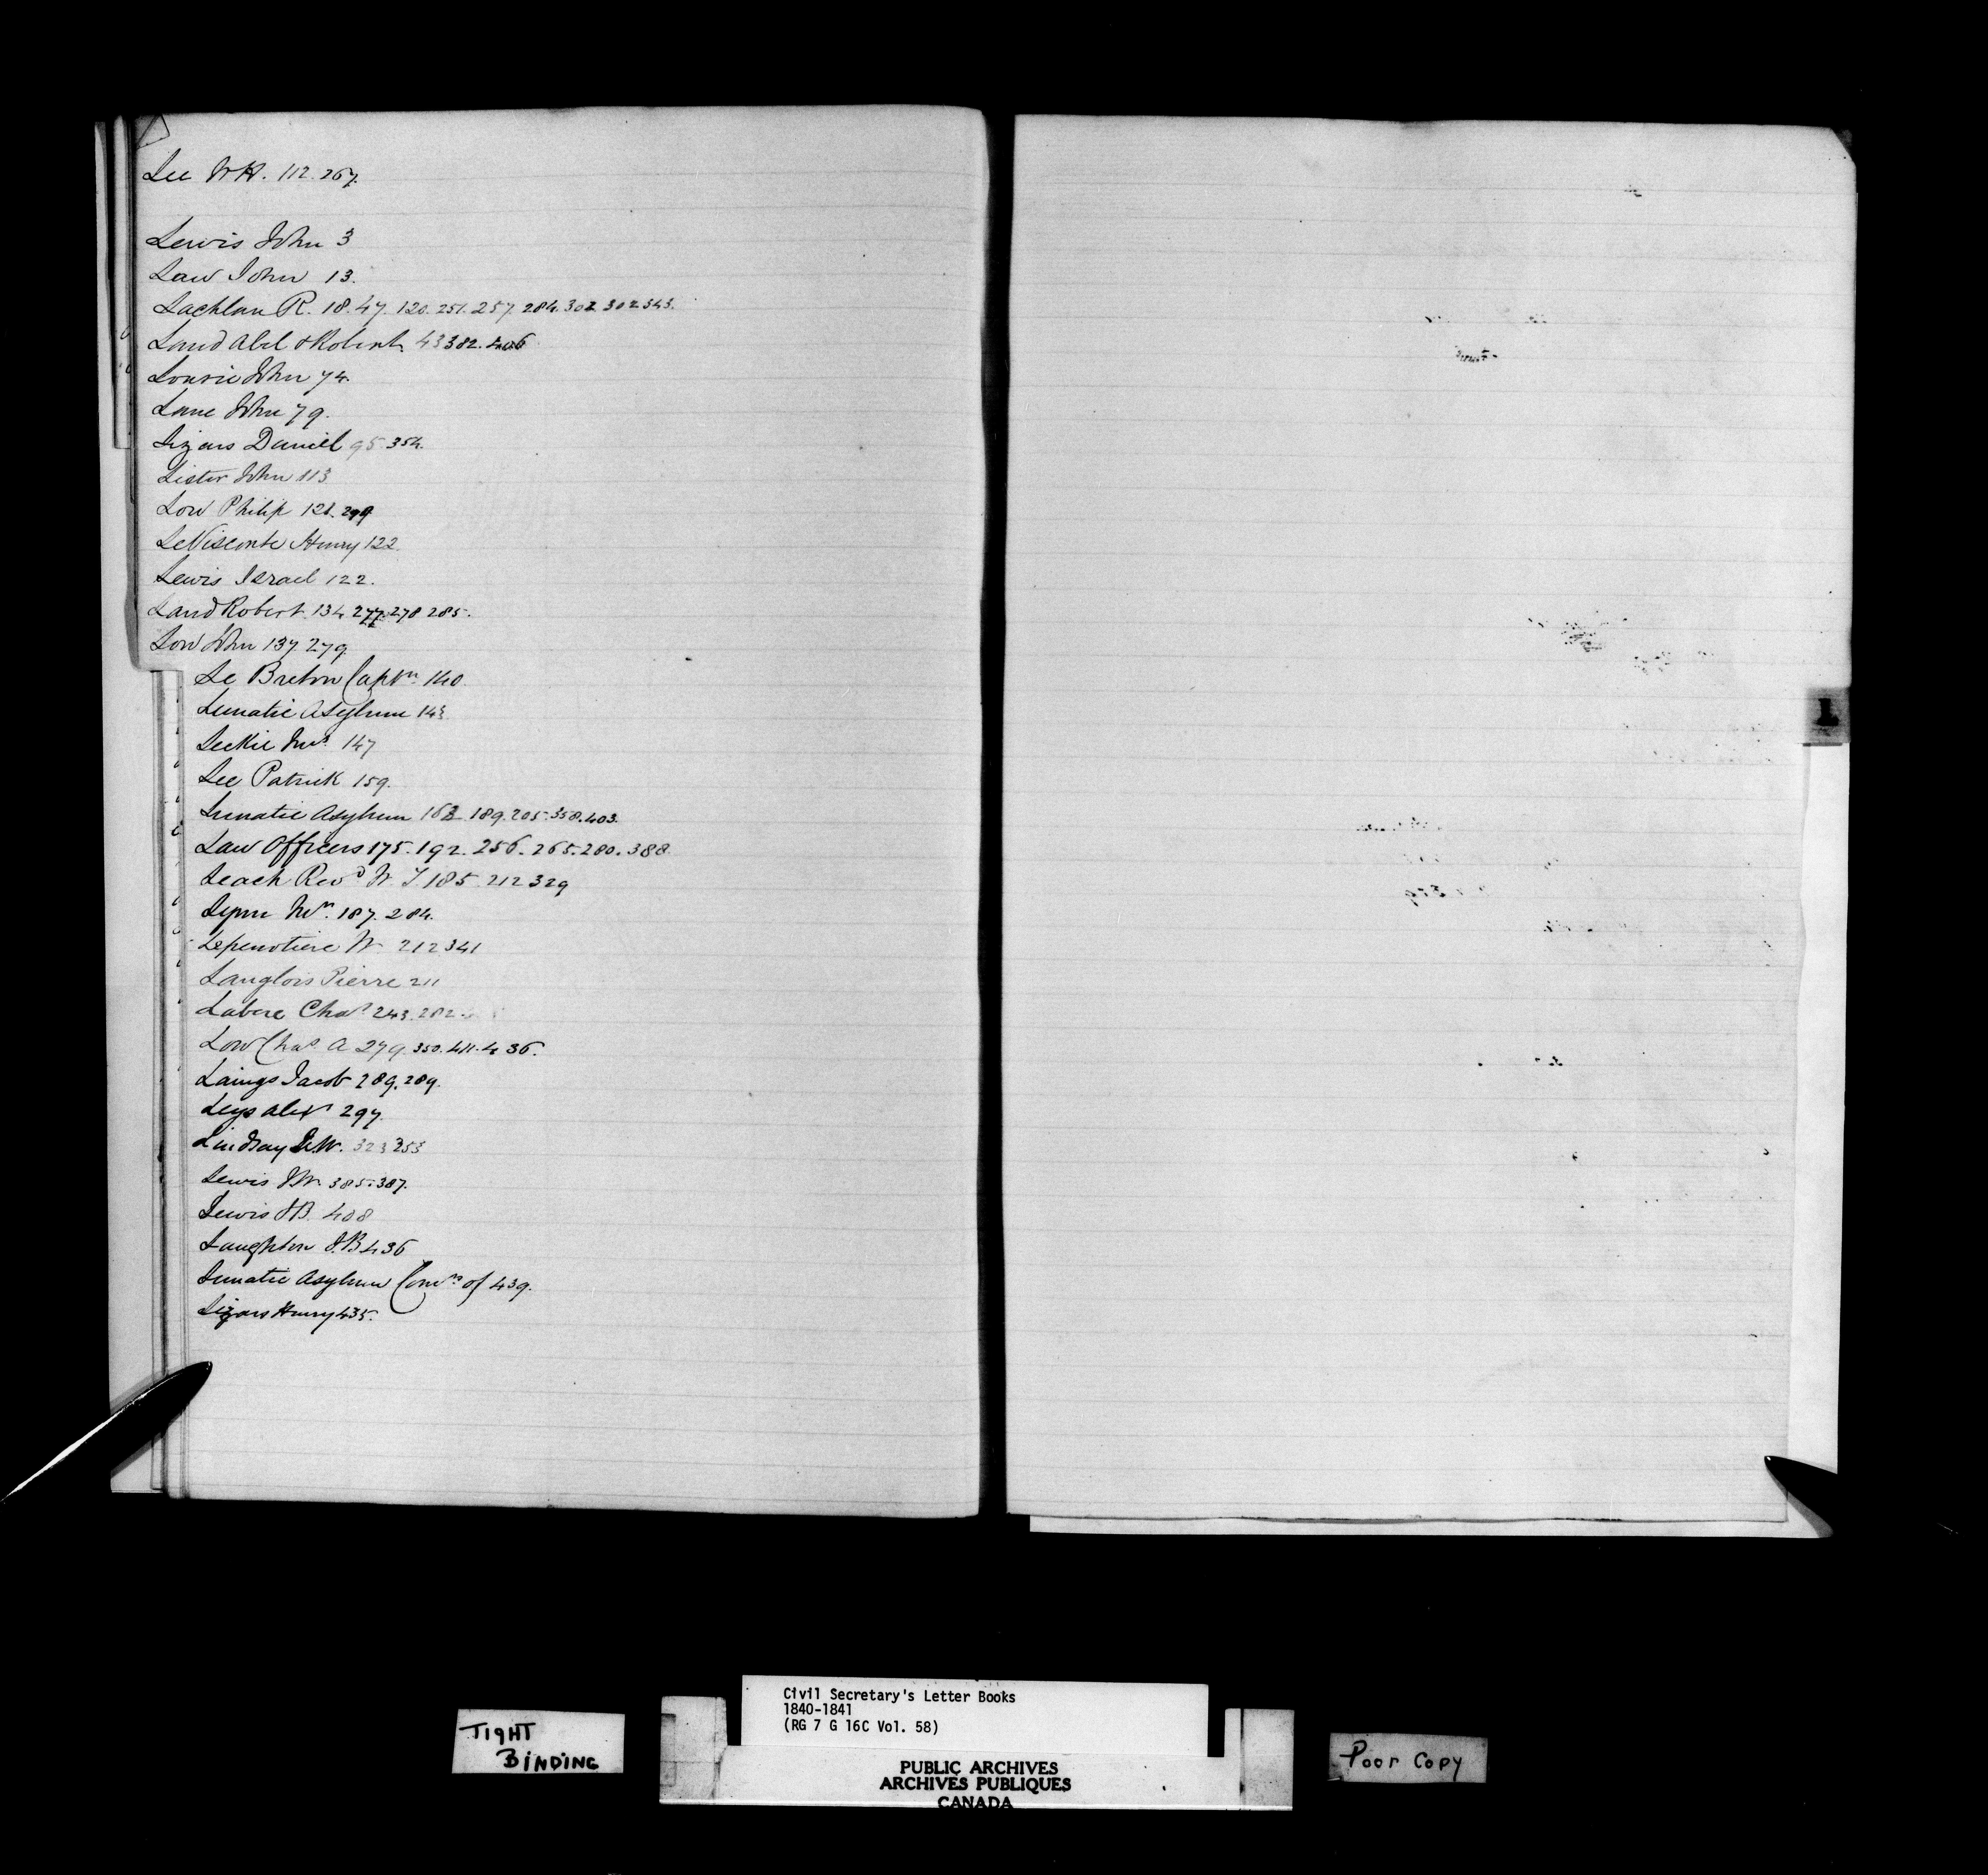 Lee W H. 112. 267.
Lewis John 3
Law John 13.
Lachlan R. 18. 47. 120. 251. 257. 284. 302 302 343.
Land Abel & Robert 43 382. 406
Lourie John 74.
Lane John 79.
Lizars Daniel 95 354.
Lister John 113
Low Philip 121. 299
LeVisconte Henry 122.
Lewis Israel 122.
Land Robert 134 277. 278 285.
Low John 137. 279.
Le Breton Captn. 140.
Lunatic Asylum 143
Leckie Mrs. 147
Lee Patrick 159.
Lunatic Asylum 162. 189. 205. 358. 403.
Law Officers 175. 192. 256. 265. 280. 388.
Leach Revd W. T 185. 212 329
Lynn Mr. 187. 284.
Lepenotiere W. 212 341
Langlois Pierre 211
Labere Chas 243. 282
Low Chas. A 279. 350. 411. 436.
Laings Jacob 289. 289.
Leys Alexr 297.
Lindsay W. 323 253
Lewis J W. 385. 387.
Lewis J B. 408
Laughton J. B 436
Lunatic Asylum Comrs of 439.
Lizars Henry 435.
L
Civil Secretary's Letter Books
1840-1841
(RG 7 G 16C Vol. 58)
TIGHT
BINDING
PUBLIC ARCHIVES
ARCHIVES PUBLIQUES
CANADA
Poor Copy